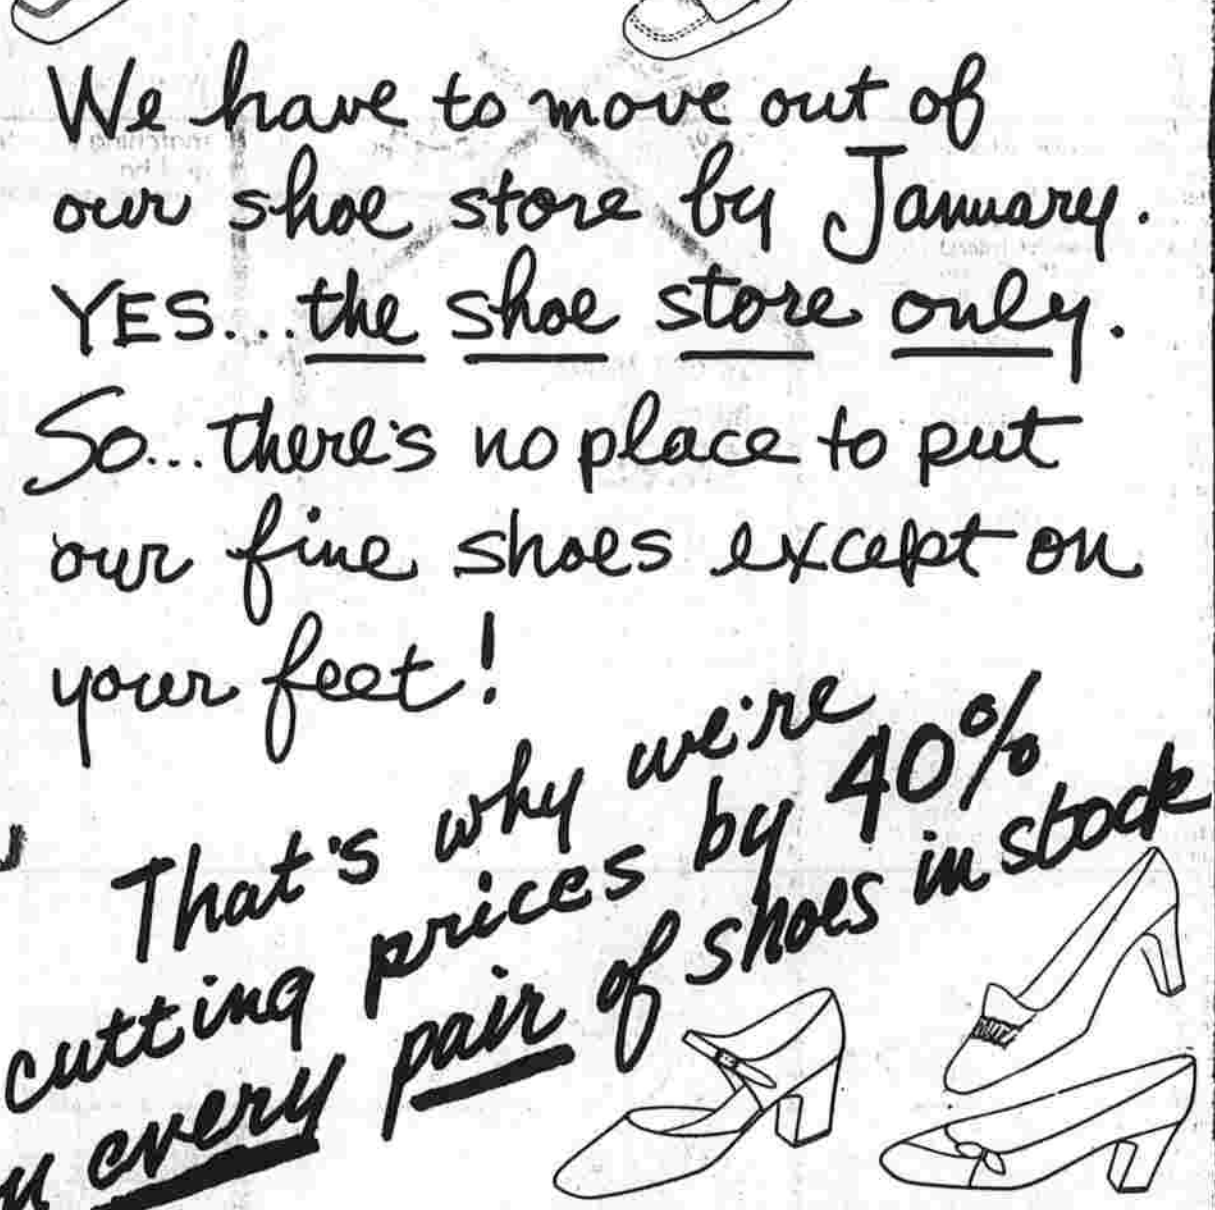 We have to move out of
our shoe store by January.
YES...the shoe store only.
So...there's no place to put
our fine shoes except on
your feet!
That's why we're
cutting prices by 40%
every pair of shoes in stock